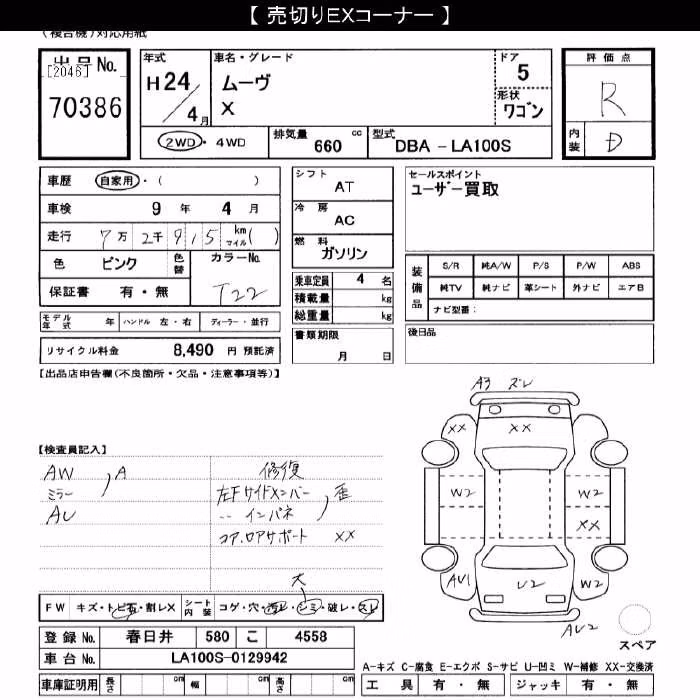 【 売切りEXコーナー 】
(複合機)対応用紙
出品No.
[2046]
70386
年式 H24 / 4月
車名・グレード
ムーヴ
X
ドア 5
形状 ワゴン
評価点 R
内装 D
2WD・4WD 排気量 660 cc 型式 DBA - LA100S
車歴 自家用・( )
車検 9 年 4 月
走行 7万 2千 9 1 5 km マイル ( )
色 ピンク 色替 カラーNo. T22
保証書 有・無
モデル年式 年 ハンドル 左・右 ディーラー・並行
リサイクル料金 8,490 円 預託済
シフト AT
冷房 AC
燃料 ガソリン
乗車定員 4 名
積載量 kg
総重量 kg
書類期限
月 日
セールスポイント
ユーザー買取
装備品 S/R 純A/W P/S P/W ABS
純TV 純ナビ 革シート 外ナビ エアB
ナビ型番:
後日品
【出品店申告欄(不良箇所・欠品・注意事項等)】
【検査員記入】
AW
ミラー ) A
AU
修復
左Fサイドメンバー
〃 インパネ ) 歪
コア.ロアサポート XX
大
FW キズ・トビ石・割レX シート内装 コゲ・穴・汚レ・シミ・破レ・スレ
A3 ズレ
XX XX
W2 W2
XX
AU1 U2 W2
AU2
スペア
登録No. 春日井 580 こ 4558
車台No. LA100S-0129942
車庫証明用 長さ cm 幅 cm 高さ cm
A-キズ C-腐食 E-エクボ S-サビ U-凹ミ W-補修 XX-交換済
工具 有・無 ジャッキ 有・無